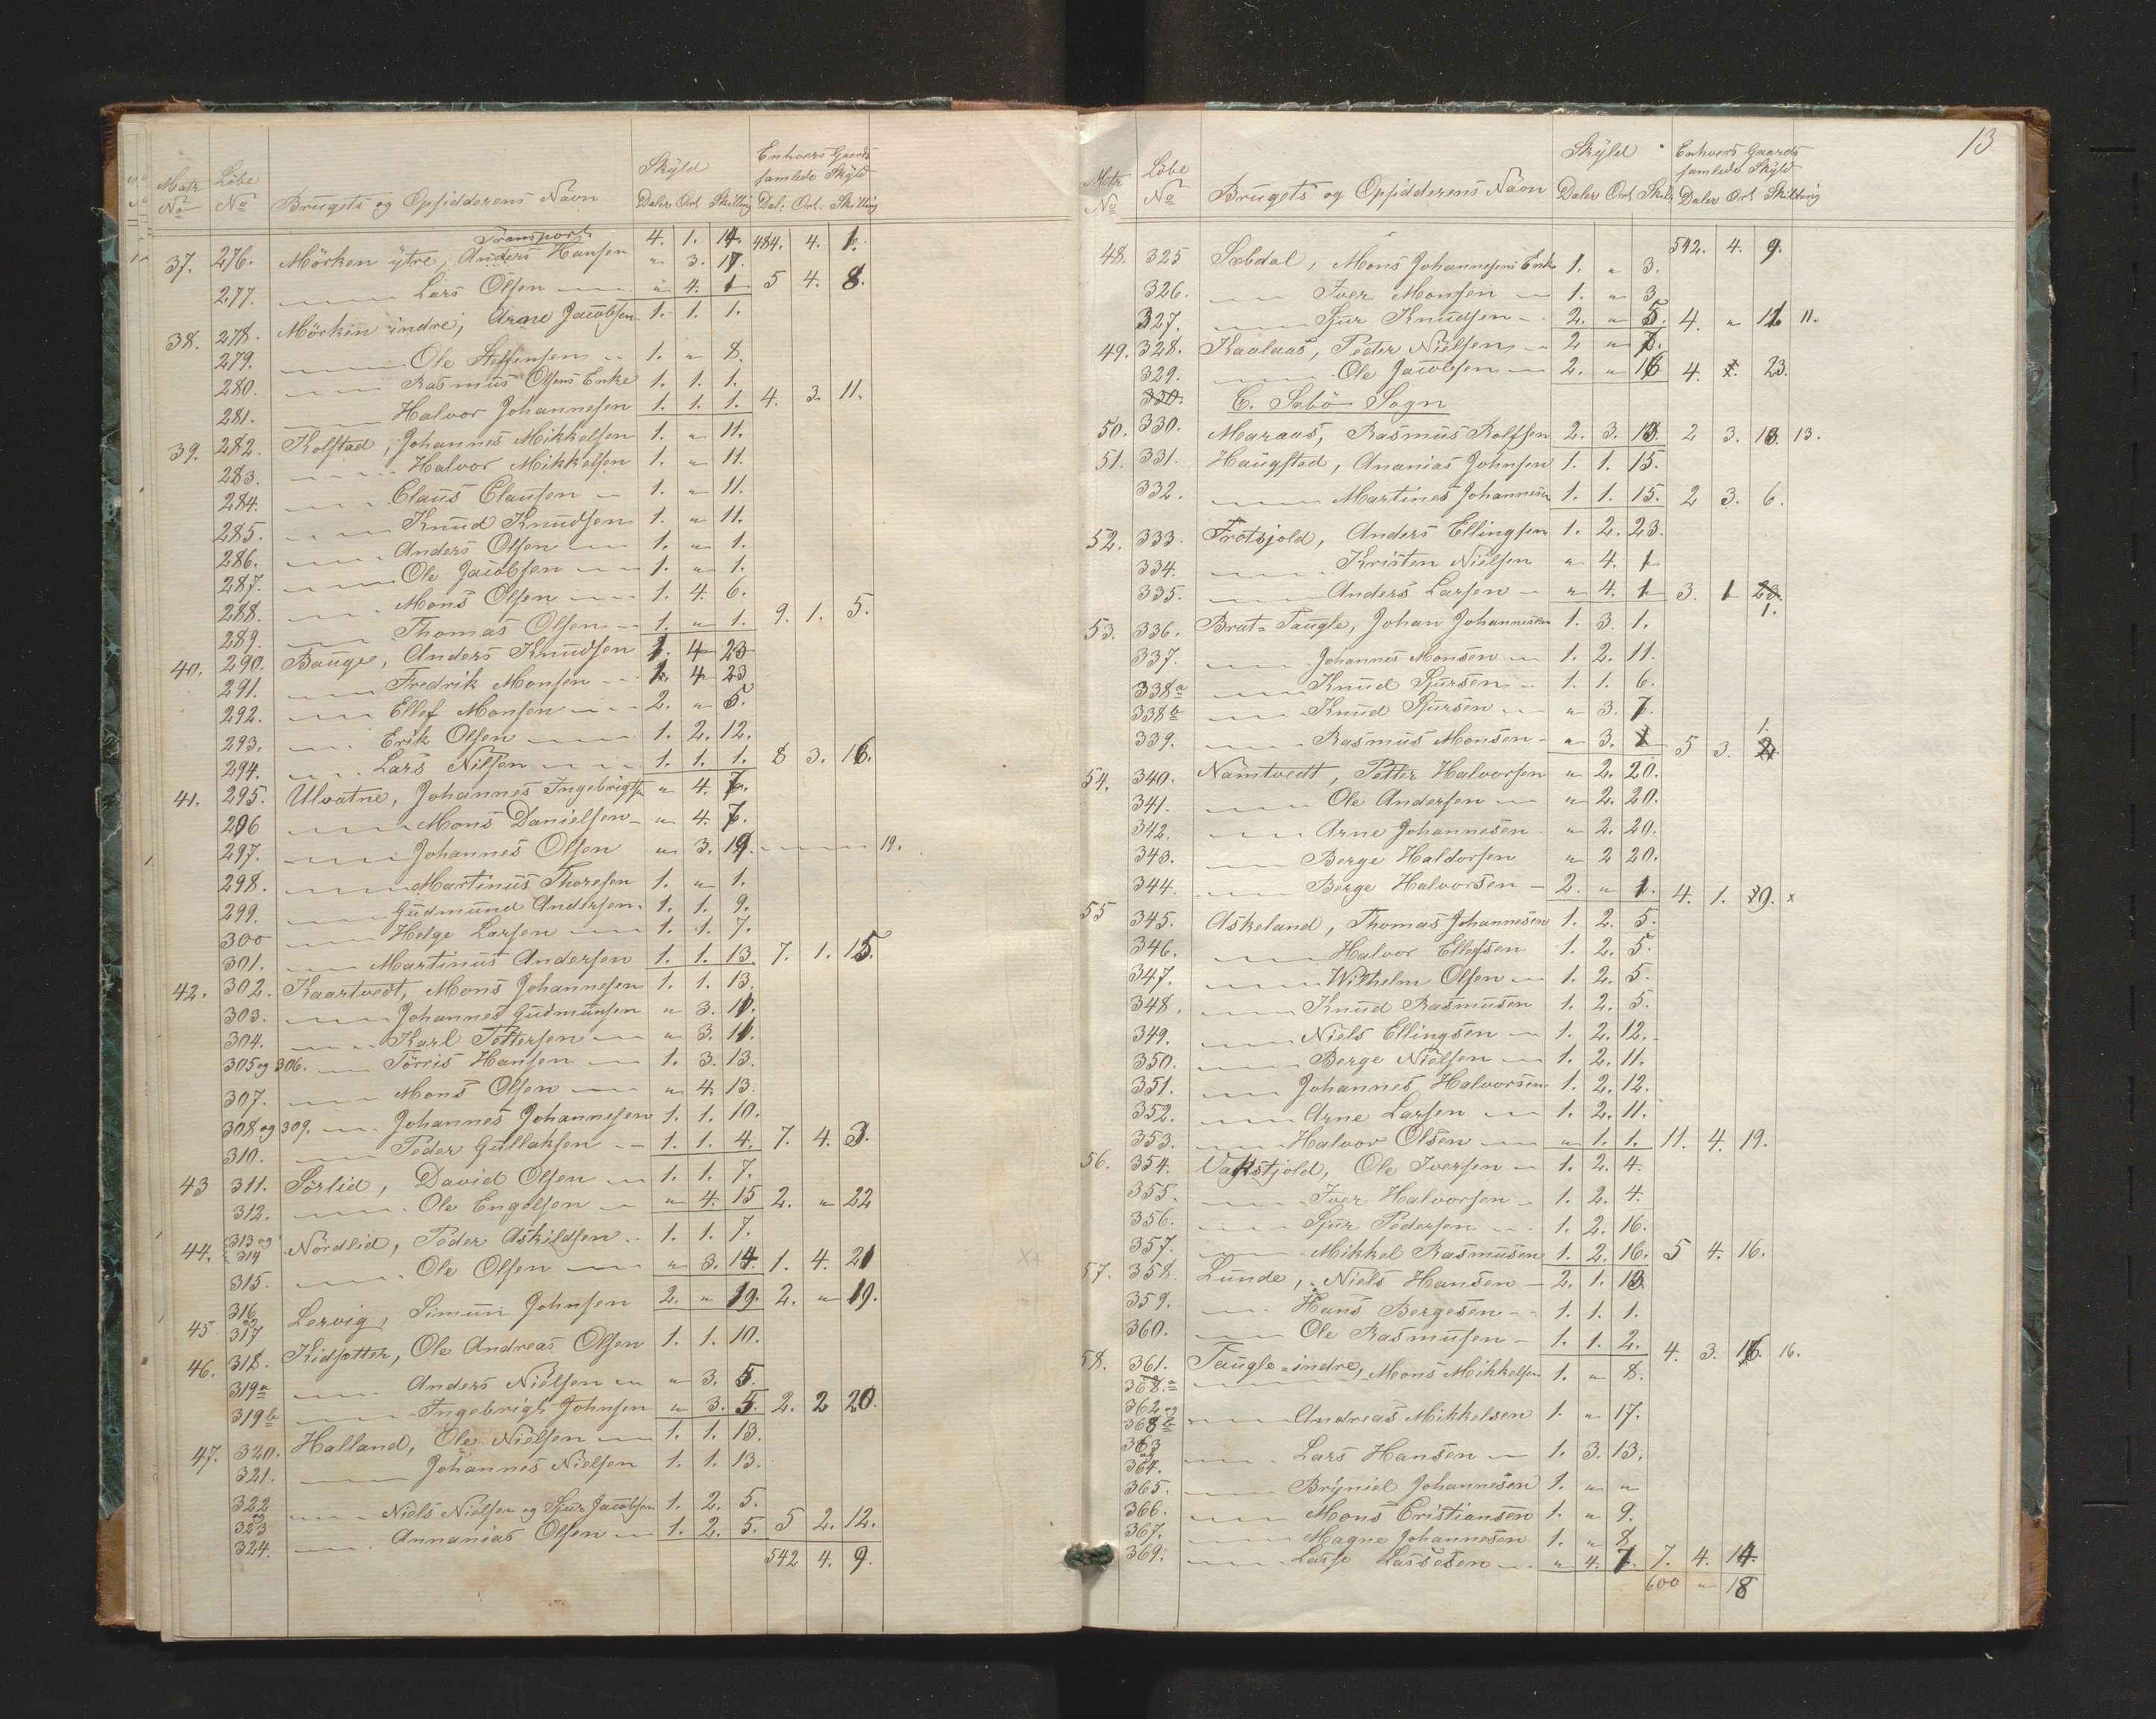 Matr No Løbe No Brugets og Opsidderens Navn Skyld Daler Ort Skilling Enhvers Gaards samlede Skyld Dal: Ort. Skilling
Transport 4. 1. 14. 484. 4. 1.
37. 276. Mörken ytre, Anders Hansen " 3. 17.
277. Lars Olsen " 4. 1 5 4. 8.
38. 278. Mörken indre, Arne Jacobsen 1. 1. 1.
279. Ole Steffensen 1. " 8.
280. Rasmus Olsens Enke 1. 1. 1.
281. Halvor Johannesen 1. 1. 1. 4. 3. 11.
39. 282. Kolstad, Johannes Mikkelsen 1. " 11.
283. Halvor Mikkelsen 1. " 11.
284. Claus Clausen 1. " 11.
285. Knud Knudsen 1. " 11.
286. Anders Olsen 1. " 1.
287. Ole Jacobsen 1. " 1.
288. Mons Olsen 1. 4. 6.
289. Thomas Olsen 1. " 1. 9. 1. 5.
40. 290. Bauge, Anders Knudsen 1. 4 23
291. Fredrik Monsen 1. 4 23
292. Ellef Monsen 2. " 5.
293. Erik Olsen 1. 2. 12.
294. Lars Nilsen 1. 1. 1. 8 3. 16.
41. 295. Ulvatne, Johannes Ingebrigts " 4. 7.
296 Mons Danielsen " 4. 7.
297. Johannes Olsen " 3. 19. 19.
298. Martinus Thoresen 1. " 1.
299. Gudmund Andersen 1. 1. 9.
300 Helge Larsen 1. 1. 7.
301. Martinus Andersen 1. 1. 13 7. 1. 15.
42. 302. Kaartvedt, Mons Johannesen 1. 1. 13.
303. Johannes Gudmunsen " 3. 11.
304. Karl Pettersen " 3. 11.
305 og 306. Törris Hansen 1. 3. 13.
307. Mons Olsen " 4. 13.
308 og 309. Johannes Johannesen 1. 1. 10.
310. Peder Gullaksen 1. 1. 4. 7. 4. 3.
43 311. Sörlid, David Olsen 1. 1. 7.
312. Ole Engelsen " 4. 15 2. " 22
44. 313 og 314 Nordlid, Peder Askildsen 1. 1. 7.
315. Ole Olsen " 3. 14. 1. 4. 21
45. 316 317 Lervig, Simun Johnsen 2. " 19. 2. " 19.
46. 318. Kidsætter, Ole Andreas Olsen 1. 1. 10.
319a Anders Nielsen " 3. 5.
319b Ingebrigt Johnsen " 3. 5. 2. 2 20.
47. 320. Halland, Ole Nielsen 1. 1. 13.
321. Johannes Nielsen 1. 1. 13.
322 og 323 Niels Nielsen og Sjur Jacobsen 1. 2. 5.
324. Annanias Olsen 1. 2. 5. 5 2. 12.
542 4. 9.
13
Matr No Løbe No Brugets og Opsidderens Navn Skyld Daler Ort Skil Enhvers Gaards samlede Skyld Daler Ort Skilling
542. 4. 9.
48. 325 Sæbdal, Mons Johannesens Enke 1. " 3.
326. Iver Monsen 1. " 3
327. Sjur Knudsen 2. " 5. 4. " 11 11.
49. 328. Kaalaas, Peder Nielsen 2 " 7.
329. Ole Jacobsen 2. " 16 4. 1. 23.
330. C. Sæbö Sogn
50. 330. Maraas, Rasmus Rolfsen 2. 3. 13. 2 3. 13. 13.
51. 331. Haugstad, Ananias Johnsen 1. 1. 15.
332. Martines Johannesen 1. 1. 15. 2 3. 6.
52. 333. Frotsjold, Anders Ellingsen 1. 2. 23.
334. Kristen Nielsen " 4. 1
335. Anders Larsen " 4. 1 3. 1 20. 1.
53. 336. Brat-Taugle, Johan Johannesen 1. 3. 1.
337. Johannes Monsen 1. 2. 11.
338a Knud Sjursen 1. 1. 6.
338b Knud Sjursen " 3. 7.
339. Rasmus Monsen " 3. 1 5 3. 2. 1.
54. 340. Namtvedt, Petter Halvorsen " 2. 20.
341. Ole Andersen " 2. 20.
342. Arne Johannesen " 2. 20.
343. Berge Haldorsen " 2 20.
344. Berge Halvorsen 2. " 1. 4. 1. 9. x
55 345. Askeland, Thomas Johannesen 1. 2. 5.
346. Halvor Ellefsen 1. 2. 5.
347. Wilhelm Olsen 1. 2. 5.
348. Knud Rasmusen 1. 2. 5.
349. Niels Ellingsen 1. 2. 12.
350. Berge Nielsen 1. 2. 11.
351. Johannes Halvorsen 1. 2. 12.
352. Arne Larsen 1. 2. 11.
353. Halvor Olsen " 1. 1. 11. 4. 19.
56. 354. Vakstjold, Ole Iversen 1. 2. 4.
355. Iver Halvorsen 1. 2. 4.
356. Sjur Pedersen 1. 2. 16.
357. Mikkel Rasmusen 1. 2. 16. 5 4. 16.
57. 358. Lunde, Niels Hansen 2. 1. 13.
359. Hans Bergesen 1. 1. 1.
360. Ole Rasmusen 1. 1. 2. 4. 3. 16. 16.
58. 361. 368.a Taugle-indre, Mons Mikkelsen 1. " 8.
362 og 368b Andreas Mikkelsen 1. " 17.
363 og 364. Lars Hansen 1. 3. 13.
365. Bryniel Johannesen 1. " "
366. Mons Cristiansen 1. " 9.
367. Magne Johannesen 1. " 8
369. Lasse Lassesen " 4. 7. 7. 4. 14.
600 " 18